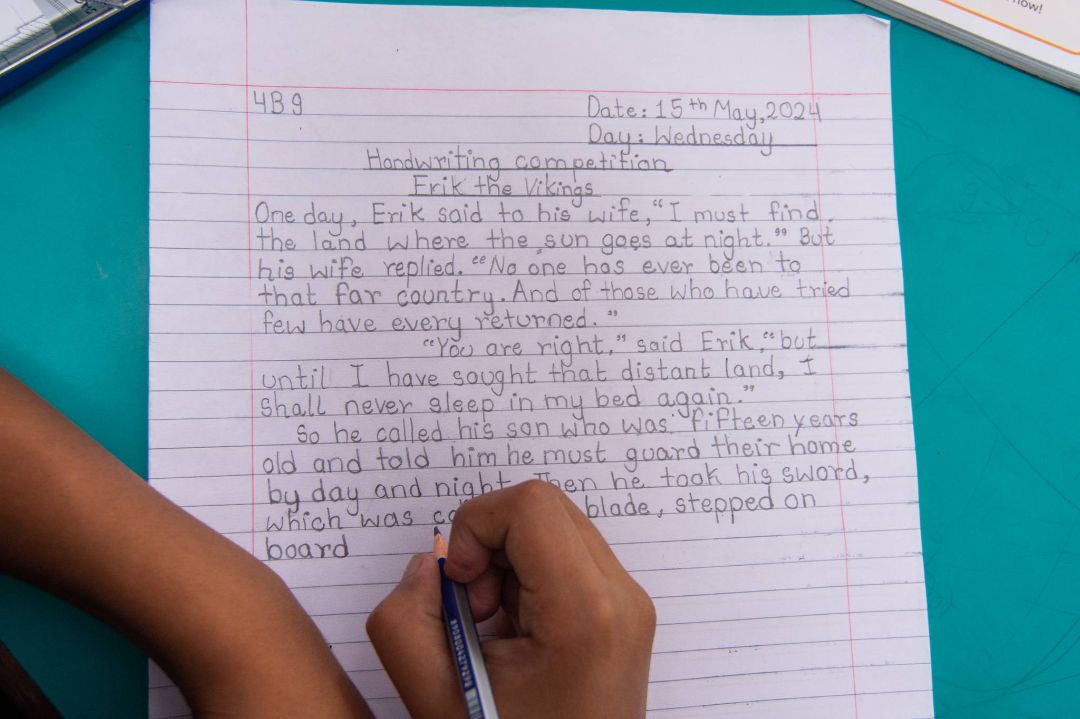 now!
4B9
Date: 15th May, 2024
Day: Wednesday
Handwriting competition
Erik the Vikings
One day, Erik said to his wife, “I must find
the land where the sun goes at night.” But
his wife replied. “No one has ever been to
that far country. And of those who have tried
few have every returned. ”
“You are right,” said Erik, “but
until I have sought that distant land, I
shall never sleep in my bed again.”
So he called his son who was fifteen years
old and told him he must guard their home
by day and night Then he took his sword,
which was blade, stepped on
board